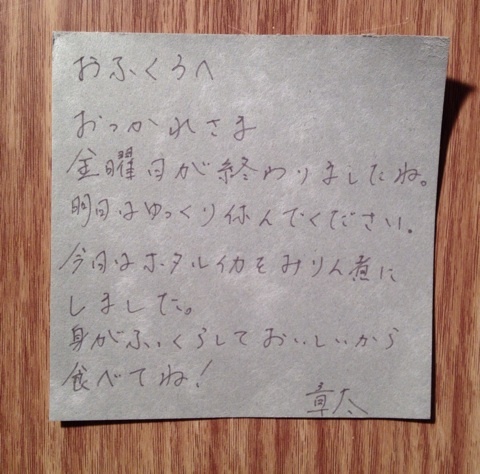 おふくろへ
おつかれさま
金曜日が終わりましたね。
明日はゆっくり休んでください。
今日はホタルイカをみりん煮に
しました。
身がふっくらしておいしいから
食べてね！
章太